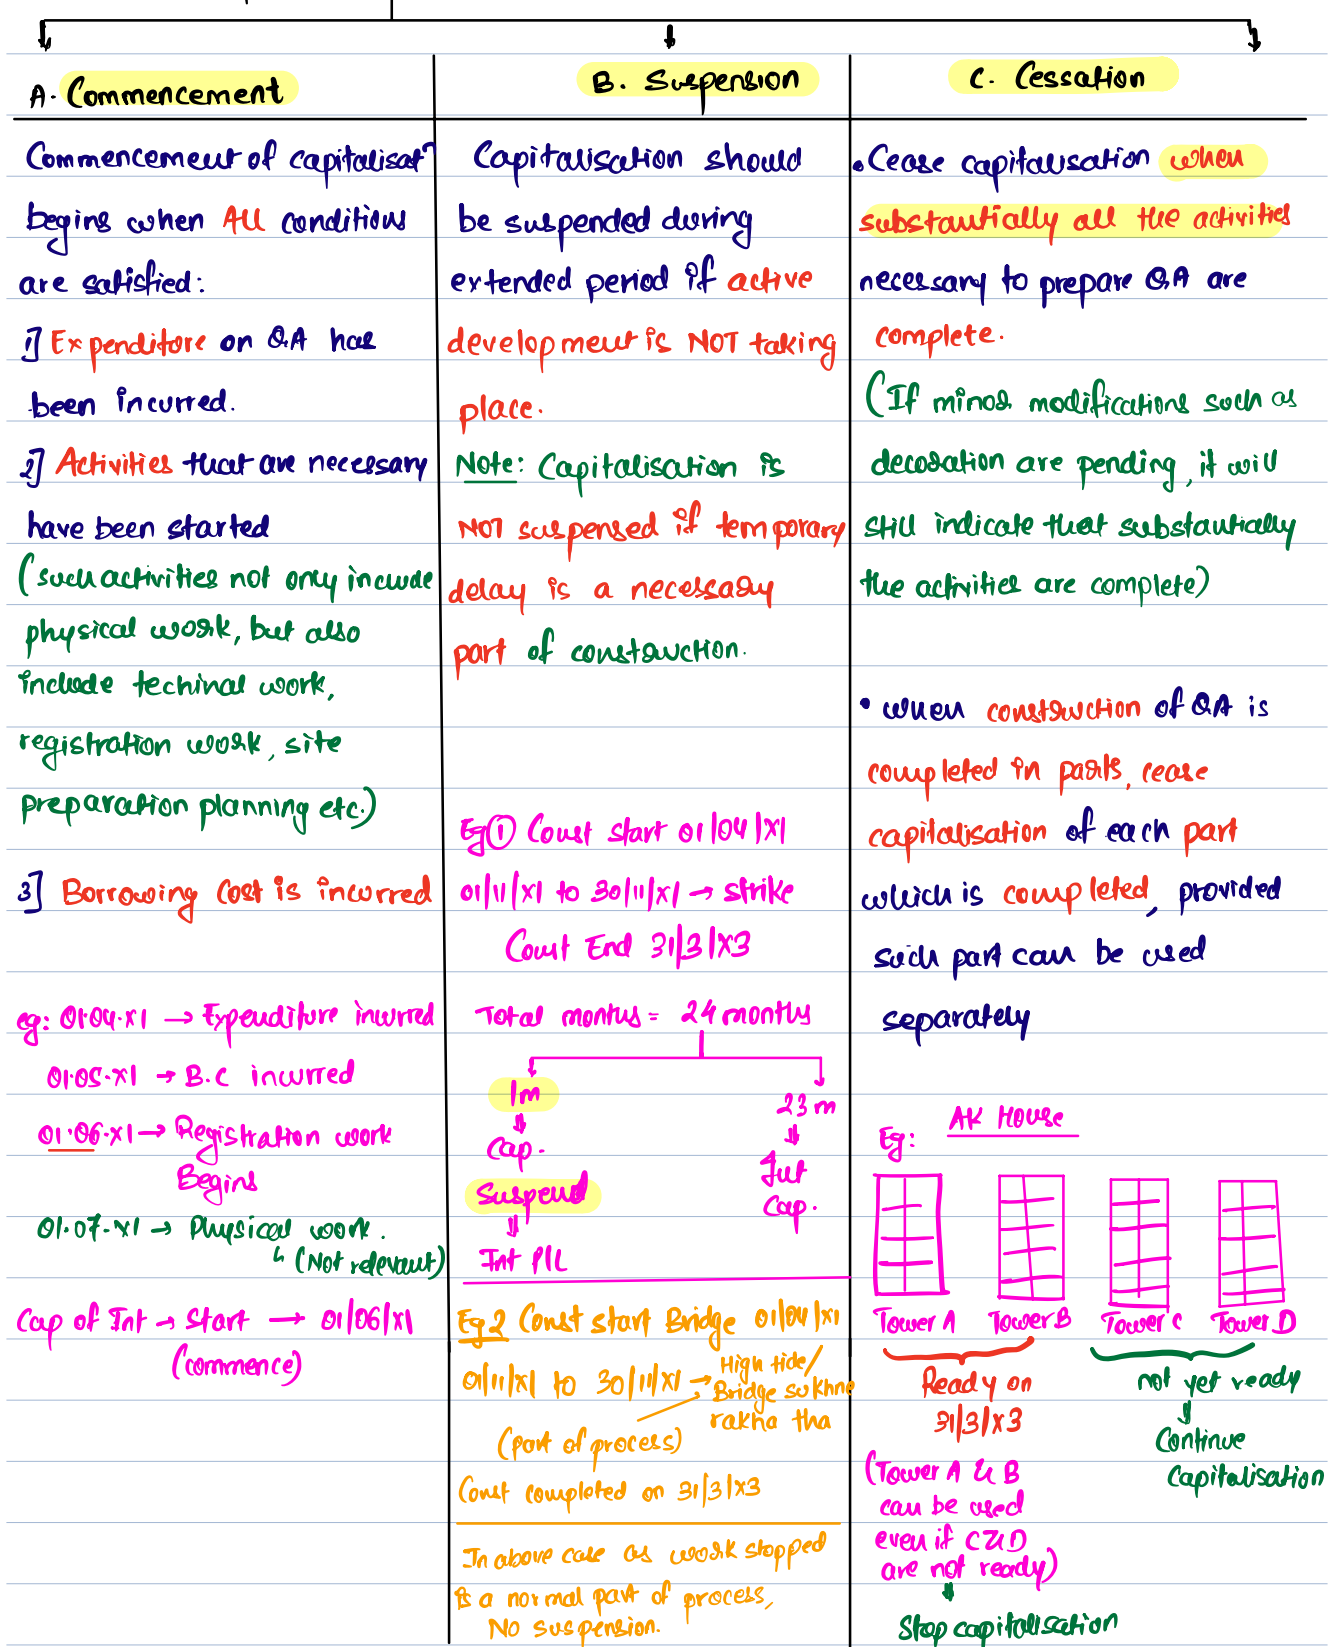 A. Commencement
Commencement of capitalisatⁿ
begins when All conditions
are satisfied:
1] Expenditure on QA has
been incurred.
2] Activities that are necessary
have been started
(such activities not only include
physical work, but also
include techinal work,
registration work, site
preparation planning etc.)
3] Borrowing Cost is incurred
eg: 01.04.X1 → Expenditure incurred
01.05.X1 → B.C incurred
01.06.X1 → Registration work
Begins
01.07.X1 → Physical work.
↳ (Not relevant)
Cap of Int → Start → 01/06/X1
(commence)
B. Suspension
Capitalisation should
be suspended during
extended period if active
development is NOT taking
place.
Note: Capitalisation is
NOT suspensed if temporary
delay is a necessary
part of construction.
Eg ① Const start 01/04/X1
01/11/X1 to 30/11/X1 → strike
Const End 31/3/X3
Total months = 24 months
1m
23 m
Cap.
Suspend
Int
Cap.
Int P/L
Eg 2 Const start Bridge 01/04/X1
01/11/X1 to 30/11/X1 → High tide/
Bridge sukhne
rakha tha
(part of process)
Const completed on 31/3/X3
In above case as work stopped
is a normal part of process,
No suspension.
C. Cessation
• Cease capitalisation when
substantially all the activities
necessary to prepare QA are
complete.
(If minor modifications such as
decoration are pending, it will
still indicate that substantially
the activities are complete)
• when construction of QA is
completed in parts, cease
capitalisation of each part
which is completed, provided
such part can be used
separately
Eg: AK House
Tower A Tower B Tower C Tower D
Ready on
31/3/X3
not yet ready
Continue
Capitalisation
(Tower A & B
can be used
even if C & D
are not ready)
Stop capitalisation